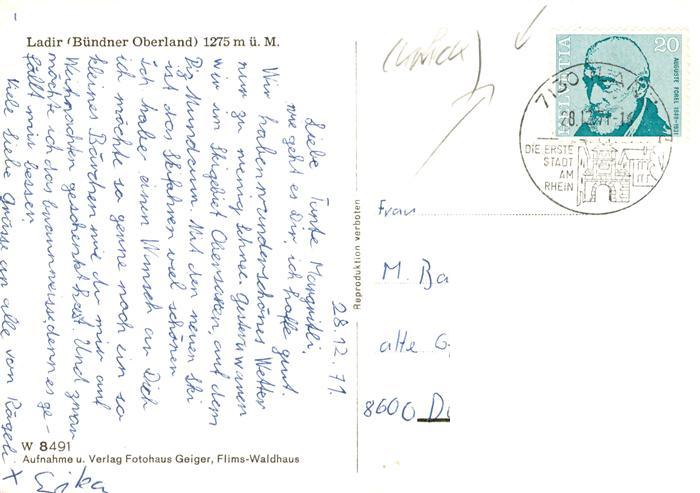 Ladir (Bündner Oberland) 1275 m ü. M.
28.12.71.
Liebe Tante Margritli,
wie geht es Dir, ich hoffe gut.
Wir haben wunderschönes Wetter
nur zu wenig Schnee. gestern waren
wir im Skigebiet Obersaxen, auf dem
Piz Mundaun. Mit den neuen Ski
ist das Skifahren viel schöner.
Ich habe einen Wunsch an Dich
ich möchte so gerne noch ein so
kleines Bärchen wie du mir auf
Weihnachten geschenkt hast. Und zwar
möchte ich das braunweisse, denn es ge-
fällt mir besser.
Viele liebe Grüsse an alle von Rägeli
X Erika
W 8491
Aufnahme u. Verlag Fotohaus Geiger, Flims-Waldhaus
Reproduktion verboten
HELVETIA
20
AUGUSTE FOREL 1848-1931
7130
28.12.71-
DIE ERSTE
STADT
AM
RHEIN
Frau
M. Ba
alte G
8600 D